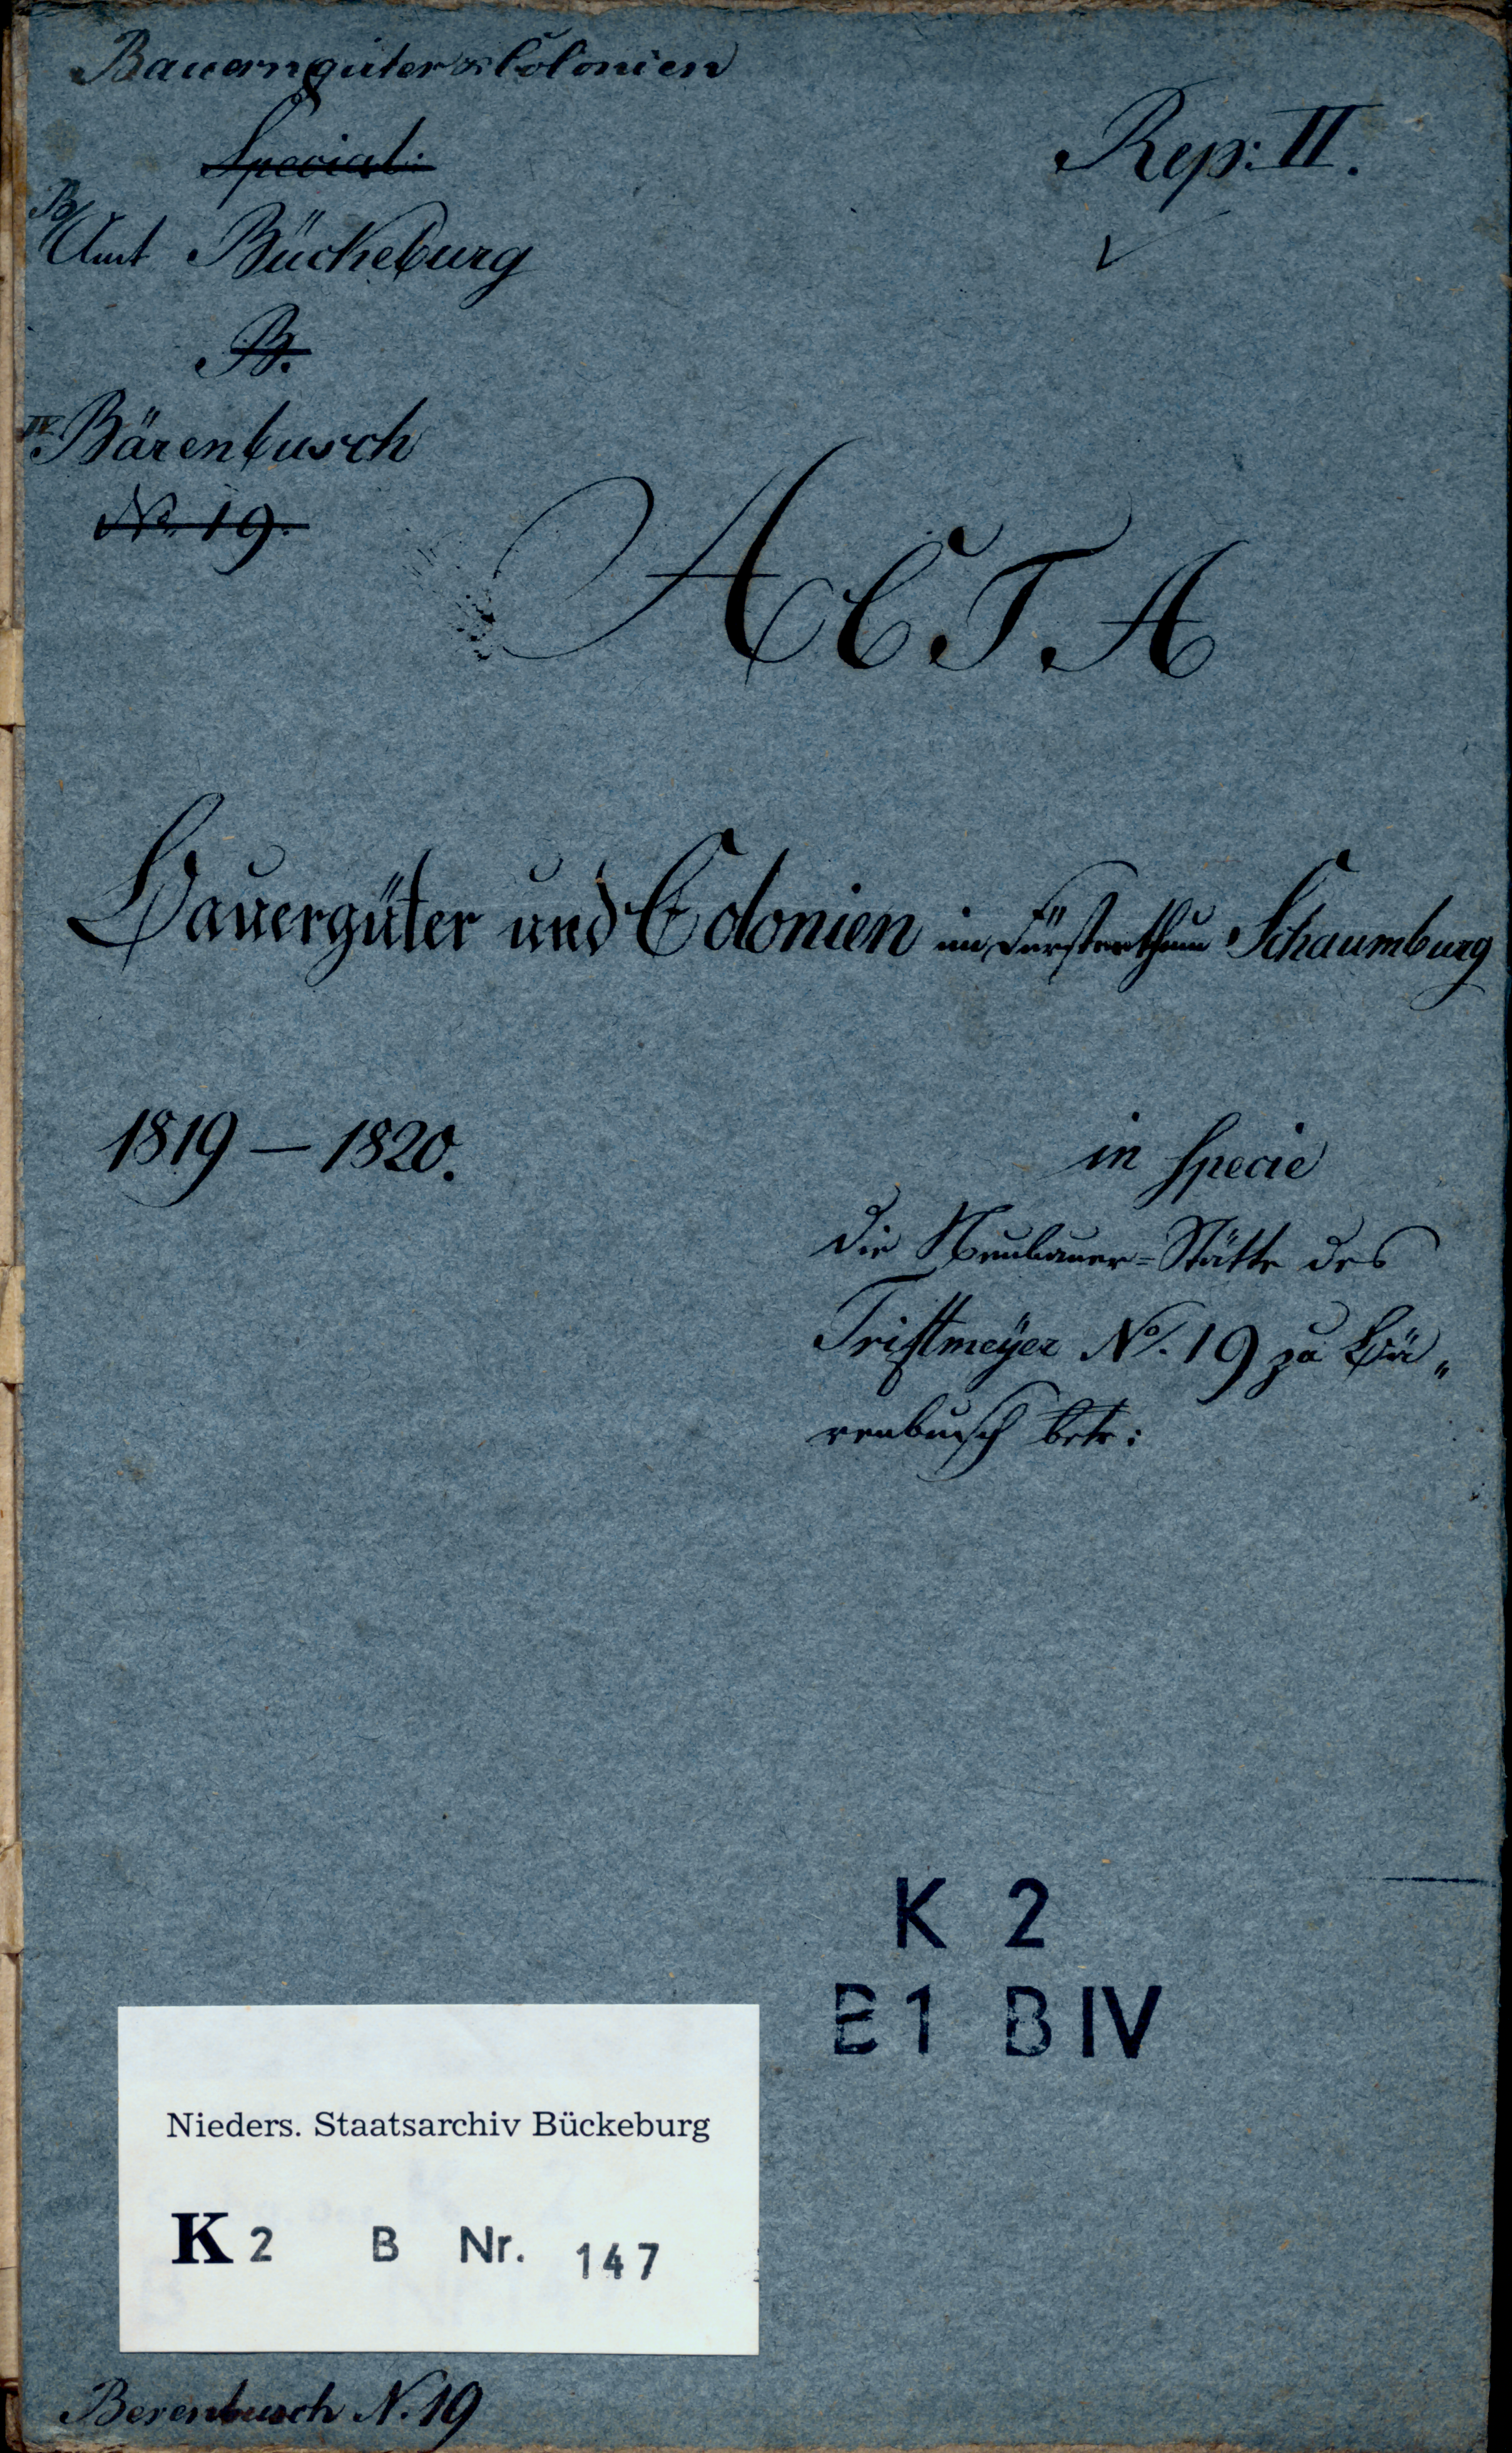 Bauerngüter & Colonien
Special:
Rep: II.
B/
Amt Bückeburg
B.
IV. Bärenbusch
No. 19.
ACTA
Bauergüter und Colonien im Fürstenthum Schaumburg
1819 – 1820.
in specie
die Neubauer=Stätte des
Triftmeÿer No. 19 zu Bä„
renbusch betr:
K 2
E1 B IV
Nieders. Staatsarchiv Bückeburg
K 2 B Nr. 147
Berenbusch N. 19